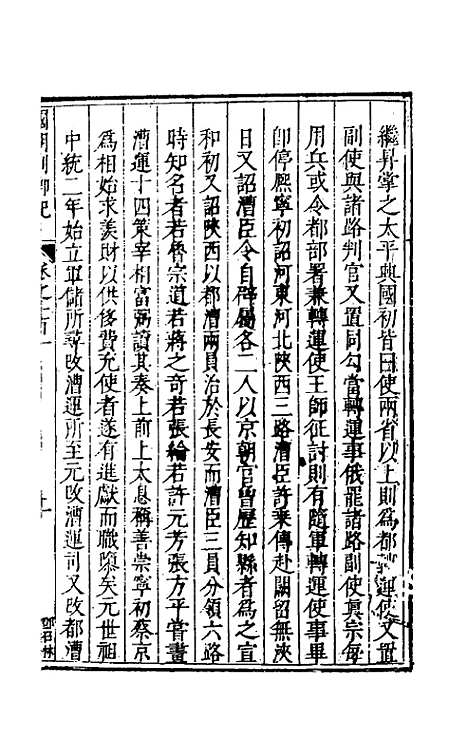 繼昇掌之太平興國初皆曰使兩省以上則爲都轉運使又置
副使與諸路判官又置同勾當轉運事俄罷諸路副使眞宗每
用兵或令都部署兼轉運使王師征討則有隨軍轉運使事畢
卽停熈寧初詔河東河北陜西三路漕臣許乘傳赴闕留無浹
日又詔漕臣令自辟屬各二人以京朝官曾歷知縣者爲之宣
和初又詔陜西以都漕兩員治於長安而漕臣三員分領六路
時知名者若魯宗道若蔣之奇若張綸若許元芳張方平嘗畫
漕運十四策宰相富弼讀其奏上前上太息稱善崇寧初蔡京
爲相始求羨財以供侈費充使者遂有進獻而職隳矣元世祖
中統二年始立軍儲所尋改漕運所至元改漕運司又改都漕
國朝列卿紀 卷之一百一